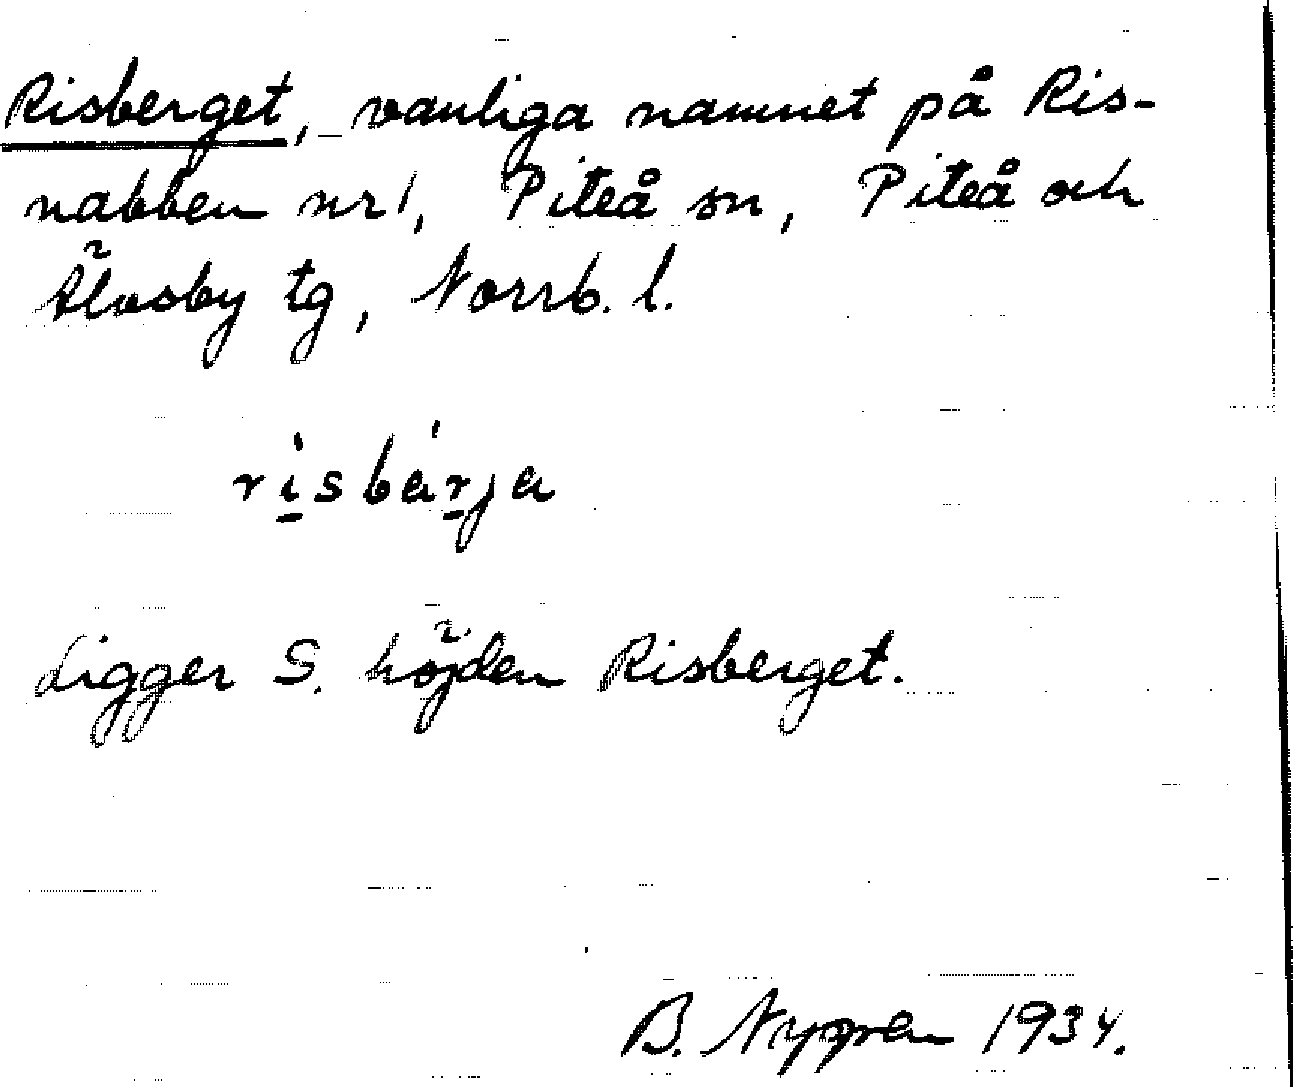 Risberget, vanliga namnet på Ris-
nabben nr 1, Piteå sn, Piteå och
Älvsby tg, Norrb. l.
ri̱sbáṟja
Ligger S. höjden Risberget.
B. 1934.